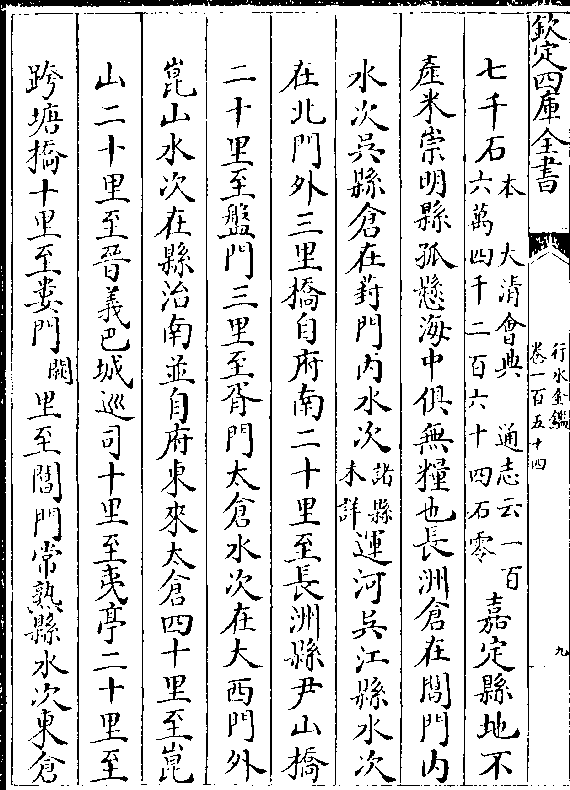 欽定四庫全書
行水金鑑
卷一百五十四
九
七千石本 大清會典 通志云一百
六萬四千二百六十四石零嘉定縣地不
產米崇明縣孤懸海中俱無糧也長洲倉在閶門内
水次吳縣倉在葑門内水次諸縣
未詳運河吳江縣水次
在北門外三里橋自府南二十里至長洲縣尹山橋
二十里至盤門三里至胥門太倉水次在大西門外
崑山水次在縣治南並自府東來太倉四十里至崑
山二十里至晉義巴城巡司十里至夷亭二十里至
跨塘橋十里至婁門闕里至閶門常熟縣水次東倉